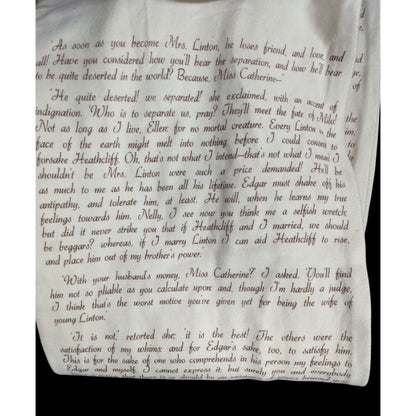 'As soon as you become Mrs. Linton, he loses friend, and love, and
all! Have you considered how you'll bear the separation, and how he'll bear
to be quite deserted in the world? Because, Miss Catherine—'
'He quite deserted! we separated!' she exclaimed, with an accent of
indignation. 'Who is to separate us, pray? They'll meet the fate of Milo!
Not as long as I live, Ellen: for no mortal creature. Every Linton on the
face of the earth might melt into nothing before I could consent to
forsake Heathcliff. Oh, that's not what I intend—that's not what I mean! I
shouldn't be Mrs. Linton were such a price demanded! He'll be
as much to me as he has been all his lifetime. Edgar must shake off his
antipathy, and tolerate him, at least. He will, when he learns my true
feelings towards him. Nelly, I see now you think me a selfish wretch;
but did it never strike you that if Heathcliff and I married, we should
be beggars? whereas, if I marry Linton I can aid Heathcliff to rise,
and place him out of my brother's power.
'With your husband's money, Miss Catherine?' I asked. 'You'll find
him not so pliable as you calculate upon: and, though I'm hardly a judge,
I think that's the worst motive you've given yet for being the wife of
young Linton.'
'It is not,' retorted she; 'it is the best! The others were the
satisfaction of my whims: and for Edgar's sake, too, to satisfy him.
This is for the sake of one who comprehends in his person my feelings to
Edgar and myself. I cannot express it; but surely you and everybody